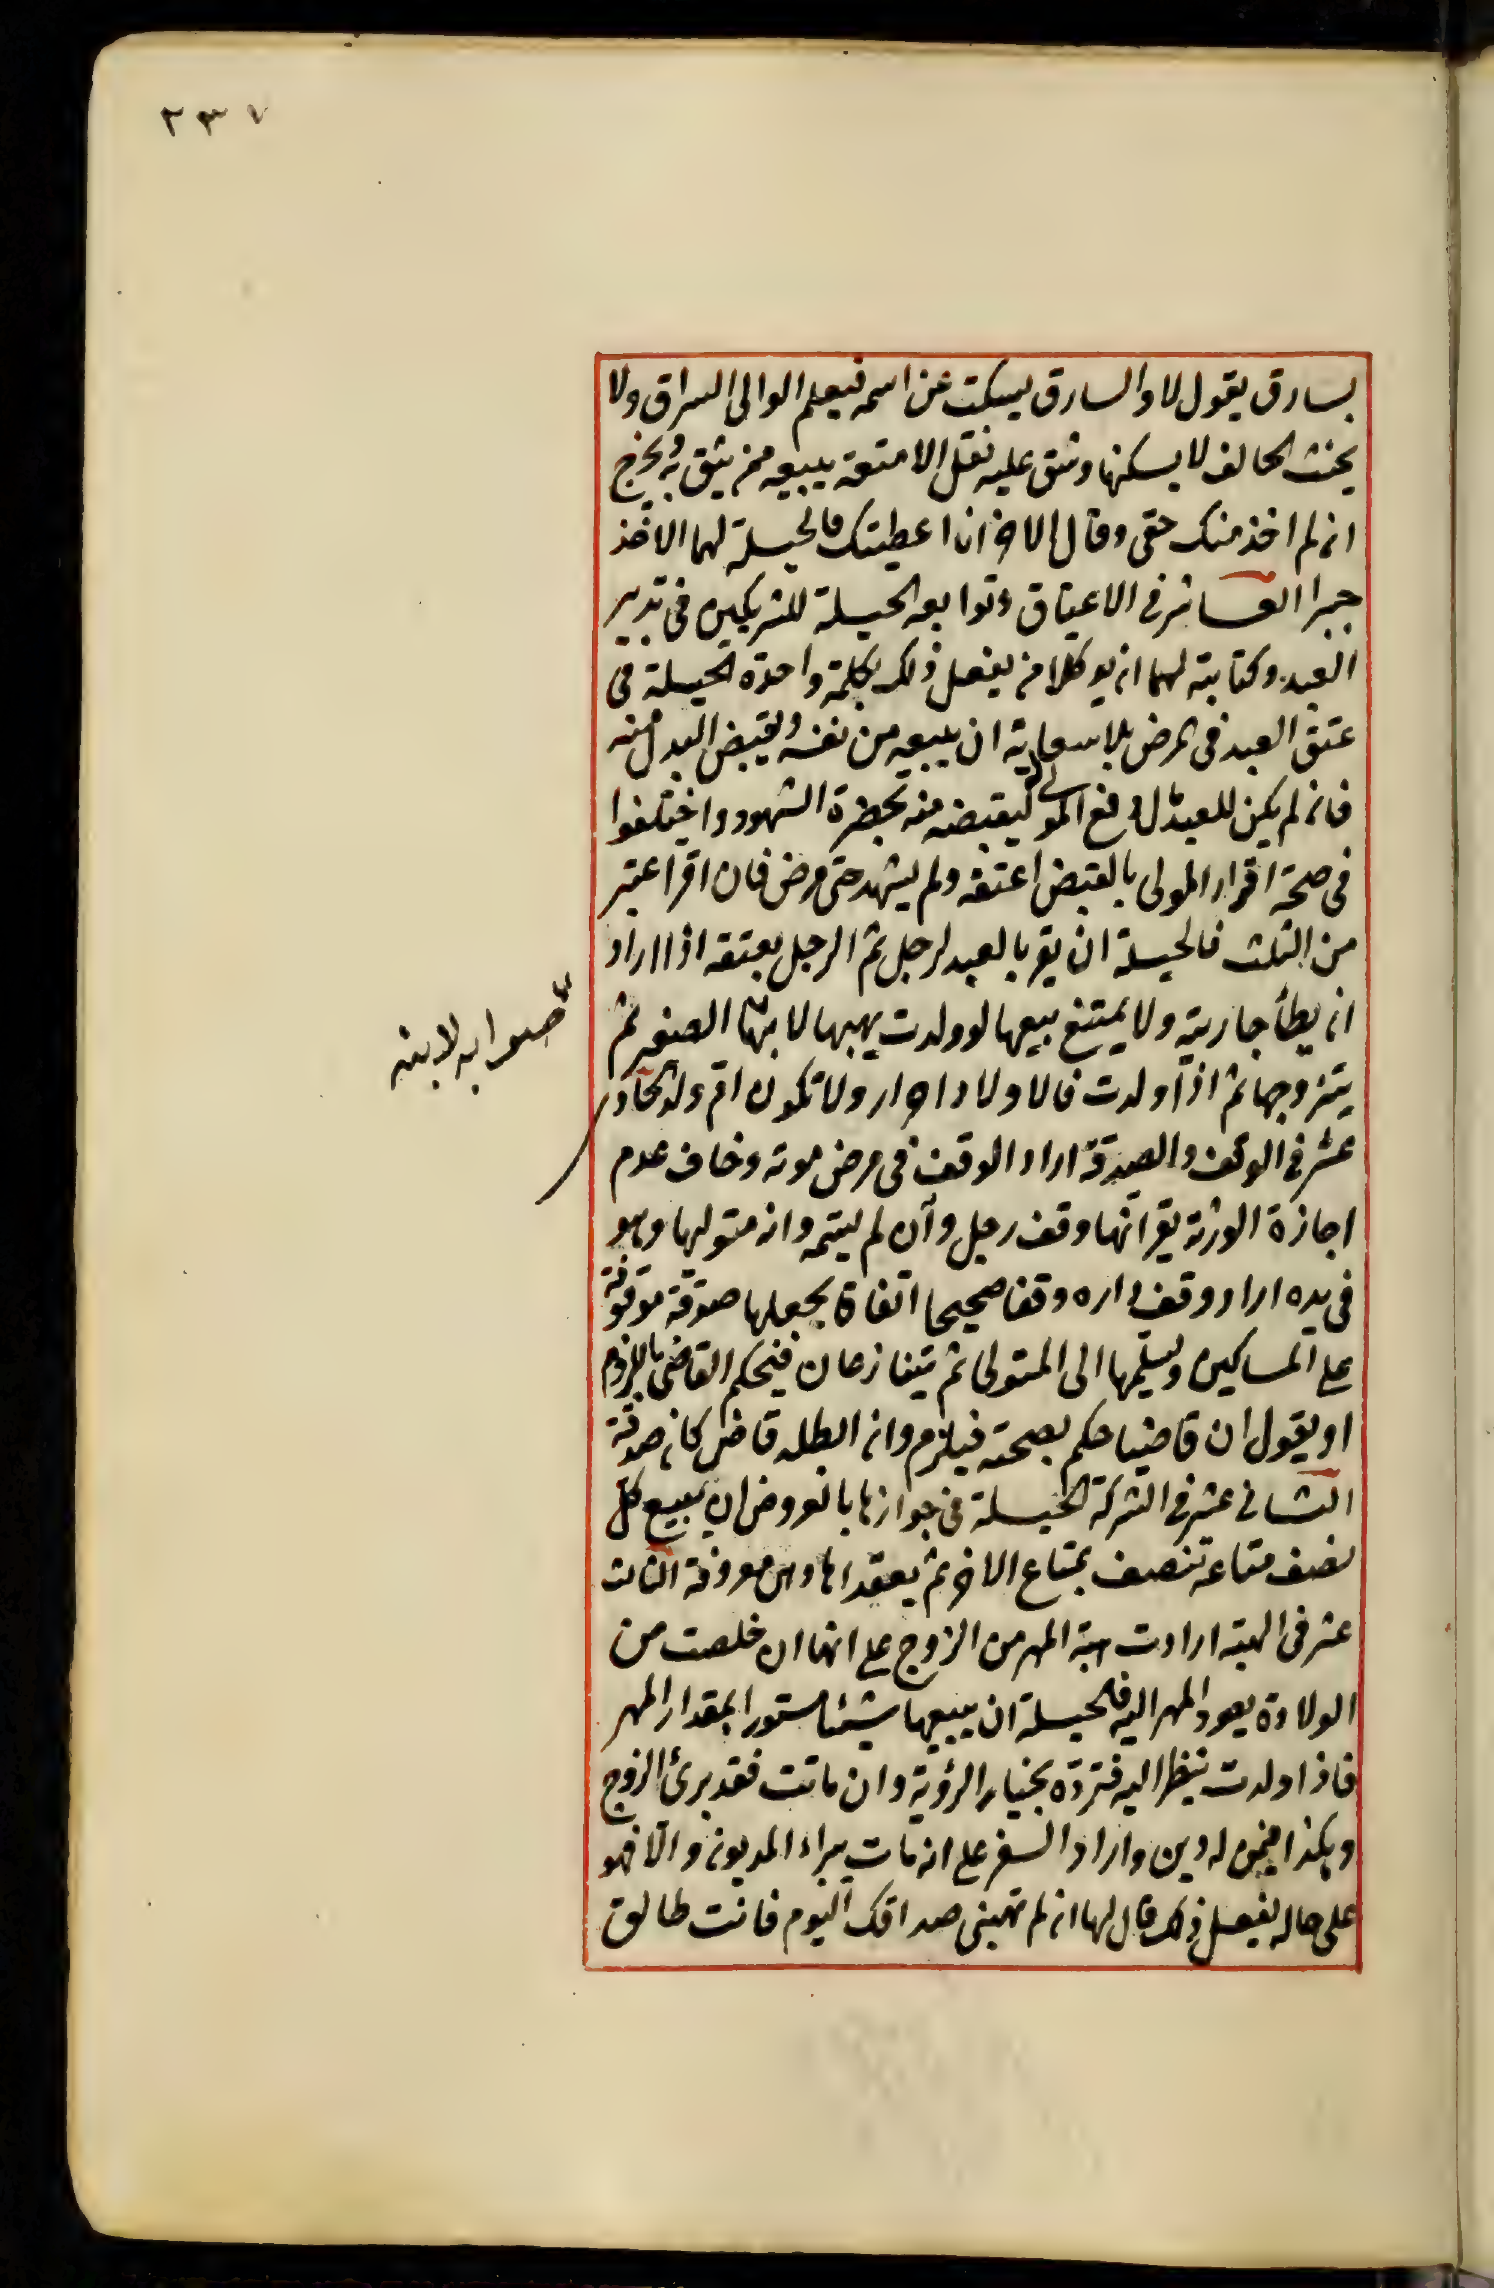 ٢٣٧
بسارق يقول لا والسارق يسكت عن اسمه فيعلم الوالى السراق ولا
يحنث الحالف لا يسكنها وشق عليه نقل الامتعة يبيعه ممن يثق به ويخرج
ان لم اخذ منك حقى وقال الاخر ان اعطيتك فالحيلة لهما الاخذ
جبرا العاشر فى الاعتاق وتوابعه الحيلة للشريكين فى تدبير
العبد وكتابته لهما ان يوكلا من يفعل ذلك بكلمة واحدة الحيلة فى
عتق العبد فى المرض بلا سعاية ان يبيعه من نفسه ويقبض البدل منه
فان لم يكن للعبد مال دفع المولى له ليقبضه منه بحضرة الشهود واختلفوا
فى صحة اقرار المولى بالقبض اعتقه ولم يشهد حتى مرض فان اقر اعتبر
من الثلث فالحيلة ان يقر بالعبد لرجل ثم الرجل يعتقه اذا اراد
ان يطأ جاريته ولا يمتنع بيعها لو ولدت يهبها لابنها الصغير ثم
يتزوجها ثم اذا ولدت فالاولاد احرار ولا تكون ام ولد الحادى
عشر فى الوقف والصدقة اراد الوقف فى مرض موته وخاف عدم
اجازة الورثة يقر انها وقف رجل وان لم يسمه وانه متوليها وهو
فى يده اراد وقف داره وقفا صحيحا اتفاقا يجعلها صدقة موقوفة
على المساكين ويسلمها الى المتولى ثم يتنازعان فيحكم القاضى باللزوم
او يقول ان قاضيا حكم بصحته فيلزم وان ابطله قاض كان صدقة
الثانى عشر فى الشركة الحيلة فى جوازها بالعروض ان يبيع كل
نصف متاعه بنصف بمتاع الاخر ثم يعقداها وهى معروفة الثالث
عشر فى الهبة ارادت هبة المهر من الزوج على انها ان خلصت من
الولادة يعود المهر اليه فالحيلة ان يبيعها شيئا مستورا بمقدار المهر
فاذا ولدت تنظر اليه فترده بخيار الرؤية وان ماتت فقد برئ الزوج
وهكذا فيمن له دين واراد السفر على انه مات يبراء المديون والا فهو
على حاله يفعل ذلك قال لها ان لم تهبينى صداقك اليوم فانت طالق
صوابه لابنه